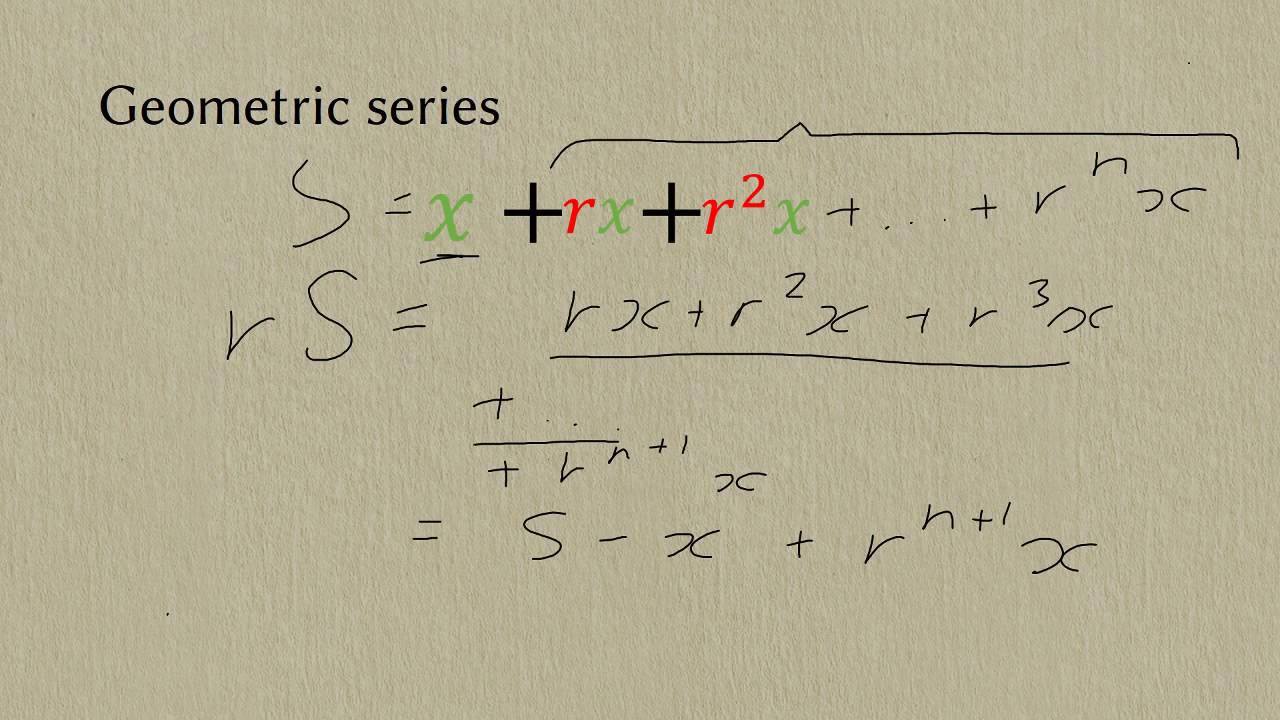 Geometric series
S = x + rx + r²x + ... + rⁿx
rS = rx + r²x + r³x
+ ...
+ rⁿ⁺¹x
= S - x + rⁿ⁺¹x